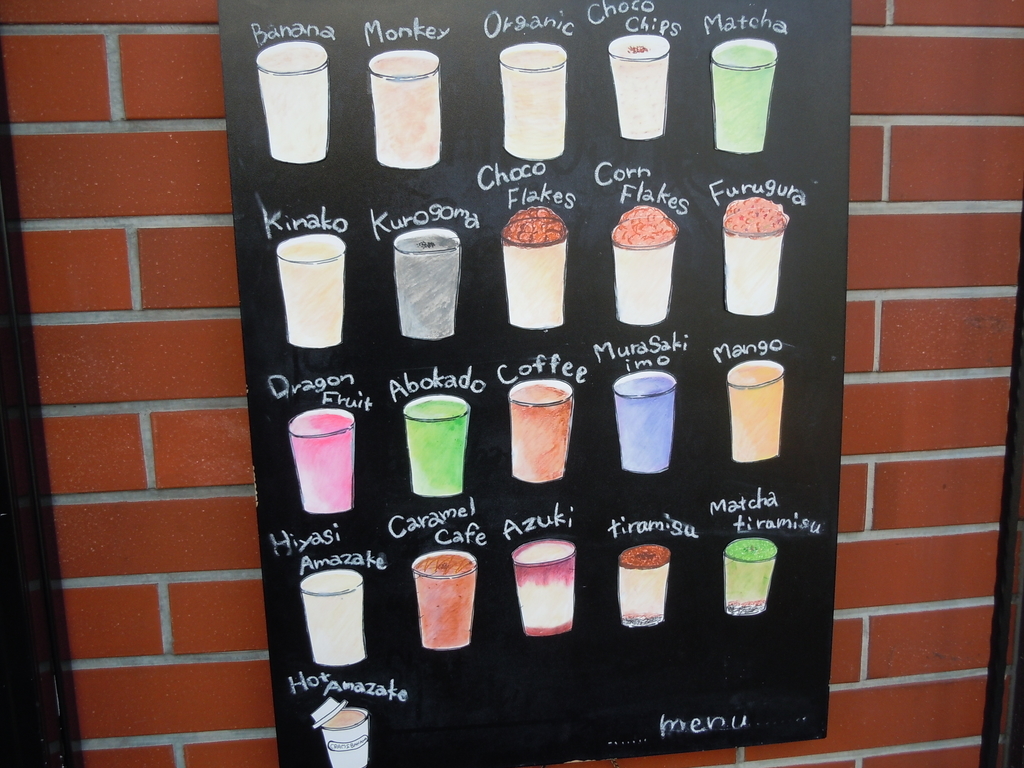 Banana
Monkey
Organic
Choco
Chips
Matcha
Kinako
Kurogoma
Choco
Flakes
Corn
Flakes
Furugura
Dragon
Fruit
Abokado
Coffee
MuraSaki
imo
Mango
Hiyasi
Amazake
Caramel
Cafe
Azuki
tiramisu
Matcha
tiramisu
Hot Amazake
menu